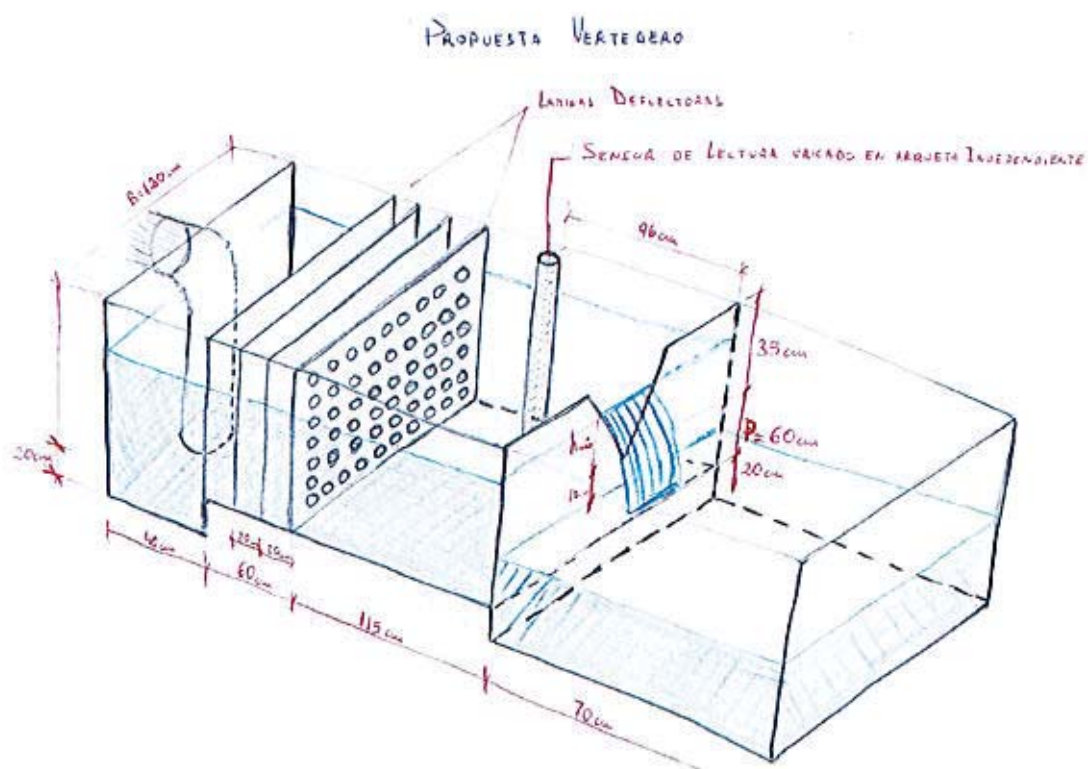 PROPUESTA VERTEDERO
LAMINAS DEFLECTORAS
SENSOR DE LECTURA UBICADO EN ARQUETA INDEPENDIENTE
B=120cm
96cm
35cm
P=60cm
20cm
20cm
60cm
115cm
70cm